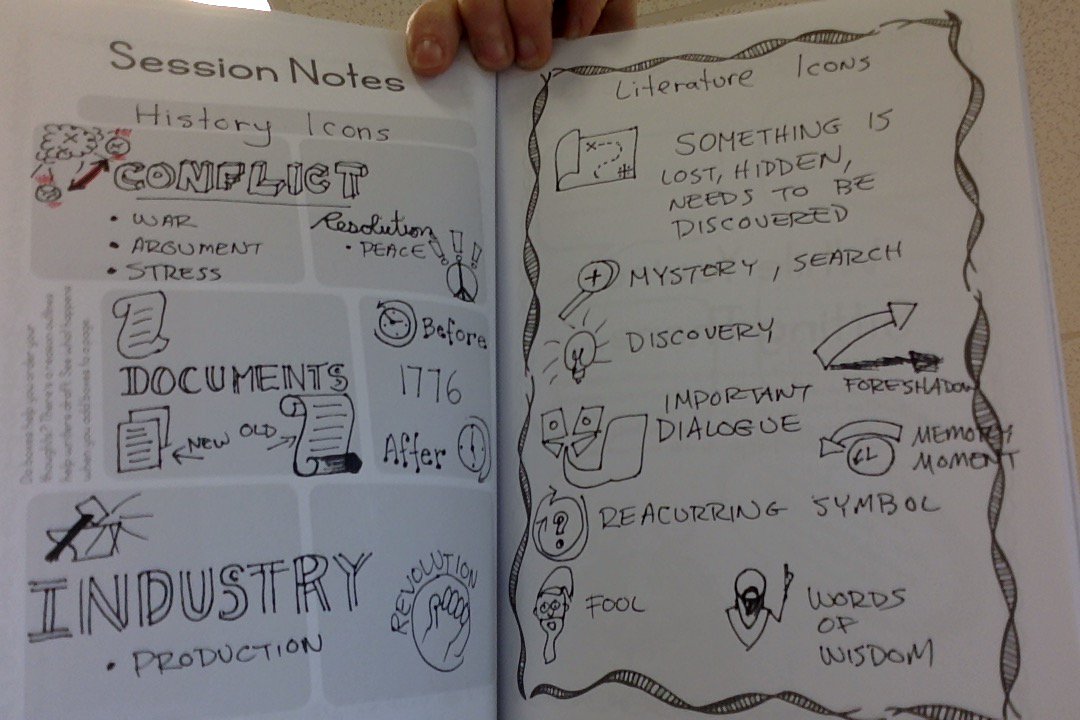 Session Notes
History Icons
CONFLICT
• WAR
• ARGUMENT
• STRESS
Resolution
• PEACE
!!!
DOCUMENTS
NEW OLD
Before
1776
After
Do boxes help you order your
thoughts? There is a reason outlines
help writers draft. See what happens
when you add boxes to a page.
INDUSTRY
• PRODUCTION
REVOLUTION
Literature Icons
X
#
SOMETHING IS
LOST, HIDDEN,
NEEDS TO BE
DISCOVERED
MYSTERY, SEARCH
DISCOVERY
FORESHADOW
IMPORTANT
DIALOGUE
MEMORY
MOMENT
?
REACURRING SYMBOL
FOOL
WORDS
OF
WISDOM